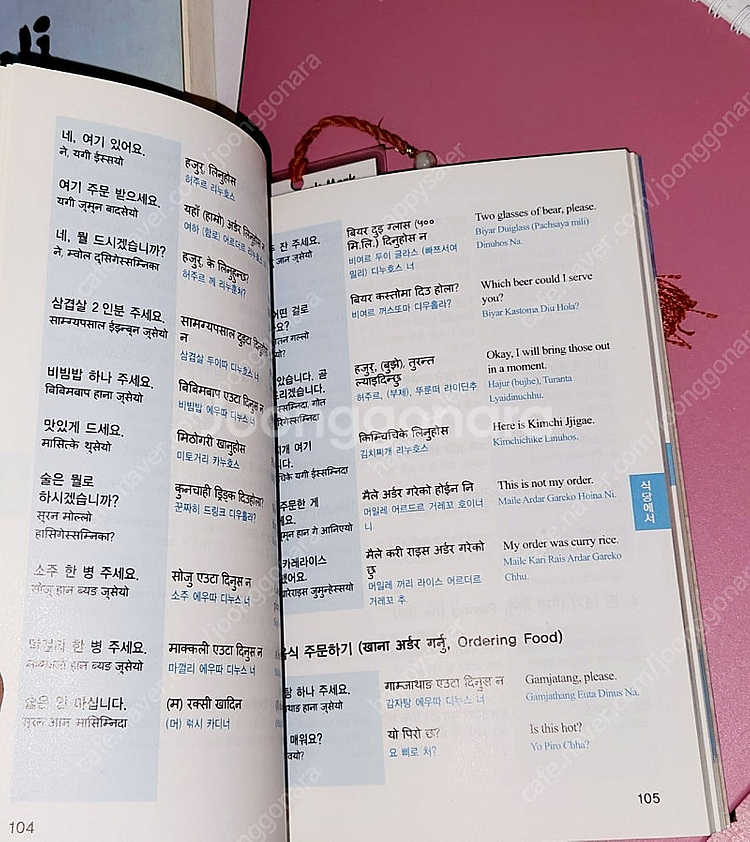 네, 여기 있어요.
ने, यगी ईस्सयो
हजुर, लिनुहोस
허주르 리누호스
여기 주문 받으세요.
यगी जुमून बादसेयो
यहाँ (हाम्रो) अर्डर लिनुहोस न
여하 (함로) 어르더르 리누호스
네, 뭘 드시겠습니까?
ने, म्वोल दुसिगेस्सम्निका
हजुर, के लिनुहुन्छ?
허주르 께 리누훈처?
삼겹살 2인분 주세요.
साम्ग्यपसाल ईइन्बुन जुसेयो
सामग्यपसाल दुइटा दिनुहोस
न
삼겹살 두이따 디누호스 너
비빔밥 하나 주세요.
बिबिमबाप हाना जुसेयो
बिबिमबाप एउटा दिनुस न
비빔밥 에우따 디누스 너
맛있게 드세요.
मासित्के थुसेयो
मिठोगरी खानुहोस
미토거리 카누호스
술은 뭘로
하시겠습니까?
सुरन मोल्लो
हासिगेस्सम्निका?
कुनचाही ड्रिड्क दिउहोला?
꾼짜히 드링크 디우홀라?
소주 한 병 주세요.
सोजु हान ब्यङ जुसेयो
सोजु एउटा दिनुस न
소주 에우따 디누스 너
막걸리 한 병 주세요.
हान ब्यङ जुसेयो
माक्कली एउटा दिनुस न
마껄리 에우따 디누스 너
술은 안 마십니다.
सुरन आन मासिम्निदा
(म) रक्सी खादिन
(머) 럭시 카디너
104
잔 주세요.
जान जुसेयो
बियर दुइ ग्लास (५००
मि.लि.) दिनुहोस न
비여르 두이 글라스 (빠쯔서여
밀리) 디누호스 너
Two glasses of bear, please.
Biyar Duiglass (Pachsaya mili)
Dinuhos Na.
어떤 걸로
बियर कस्तोमा दिउ होला?
비여르 꺼스또마 디우홀라?
Which beer could I serve
you?
Biyar Kastoma Diu Hola?
있습니다. 곧
드리겠습니다.
हजुर, (बुझे), तुरन्त
ल्याइदिन्छु
허주르, (부제), 뚜룬떠 랴이딘추
Okay, I will bring those out
in a moment.
Hajur (bujhe), Turanta
Lyaidinuchhu.
여기
किम्चिचिके लिनुहोस
김치찌개 리누호스
Here is Kimchi Jjigae.
Kimchichike Linuhos.
주문한 게
मैले अर्डर गरेको होईन नि
머일레 어르드르 거레꼬 호이너
니
This is not my order.
Maile Ardar Gareko Hoina Ni.
카레라이스
मैले करी राइस अर्डर गरेको
छु
머일레 꺼리 라이스 어르더르
거레꼬 추.
My order was curry rice.
Maile Kari Rais Ardar Gareko
Chhu.
식당에서
음식 주문하기 (खाना अर्डर गर्नु, Ordering Food)
탕 하나 주세요.
हाना जुसेयो
गाम्जाथाङ एउटा दिनुस न
감자탕 에우따 디누스 너
Gamjatang, please.
Gamjathang Euta Dinus Na.
매워요?
यो पिरो छ?
요 삐로 처?
Is this hot?
Yo Piro Chha?
105
joonggonara